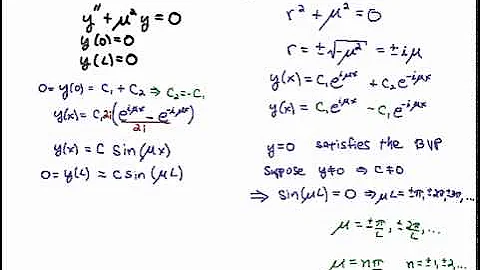 y″ + μ² y = 0
y(0) = 0
y(L) = 0
0 = y(0) = C₁ + C₂ ⇒ C₂ = -C₁
y(x) = C₁2i( (e^{iμx} - e^{-iμx}) / 2i )
y(x) = C sin(μx)
0 = y(L) = C sin(μL)
r² + μ² = 0
r = ±√-μ² = ±iμ
y(x) = C₁e^{iμx} + C₂e^{-iμx}
y(x) = C₁e^{iμx} - C₁e^{-iμx}
y=0 satisfies the BVP
Suppose y≠0 ⇒ C≠0
⇒ sin(μL) = 0 ⇒ μL = ±π, ±2π, ±3π, ...
μ = ±π/L, ±2π/L, ...
μ = nπ/L n = ±1, ±2, ...